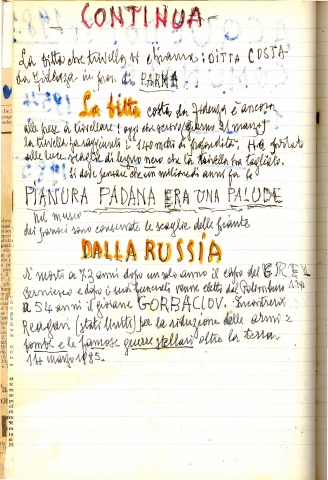 - CONTINUA -
La Ditta che trivella si chiama: DITTA COSTA
da Fidenza in prov. di PARMA
La Ditta Costa da Fidenza è ancora
alle prese a trivellare: oggi che scrivo (giorno 11 marzo)
la trivella ha raggiunto i 140 metri di profondità. Ha portato
alla luce scaglie di legno nero che la trivella ha tagliato.
Si deve pensare che un milione di anni fa la
PIANURA PADANA ERA UNA PALUDE
Nel museo
dei fransci sono conservate le scaglie delle piante
DALLA RUSSIA
È morto a 73 anni dopo un solo anno il capo del
Cernienco e dopo i suoi funerali venne eletto dal
a 54 anni il giovane GORBACIOV. Incontrerà
Reagan (Stati Uniti) per la riduzione delle armi e
bombe e le famose guerre stellari oltre la terra
14 marzo 1985.